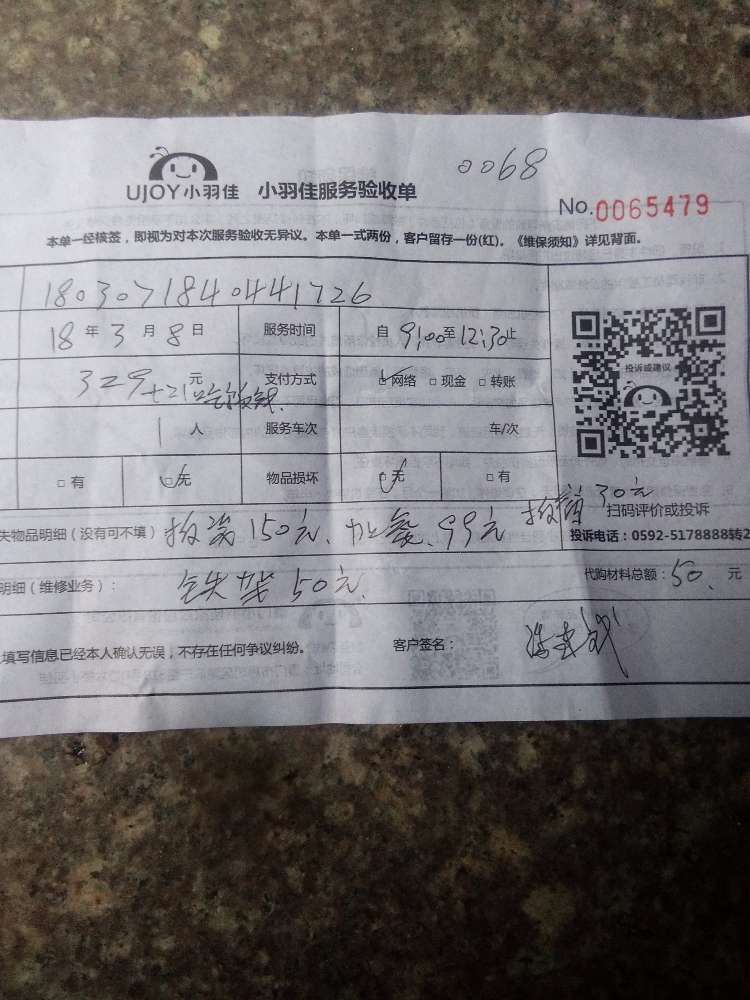 0068
UJOY小羽佳 小羽佳服务验收单
No.0065479
本单一经核签，即视为对本次服务验收无异议。本单一式两份，客户留存一份(红)。《维保须知》详见背面。
1803071840441726
18年3月8日 服务时间 自9:00至12:30止
投诉或建议
329+21元 吃饭钱 支付方式 ☑网络 □现金 □转账
1人 服务车次 车/次
□有 ☑无 物品损坏 ☑无 □有
失物品明细（没有可不填） 拆装150元、加氨、99元 30元
扫码评价或投诉
投诉电话：0592-5178888转2
明细（维修业务）： 铁架50元 代购材料总额：50、元
填写信息已经本人确认无误，不存在任何争议纠纷。 客户签名：